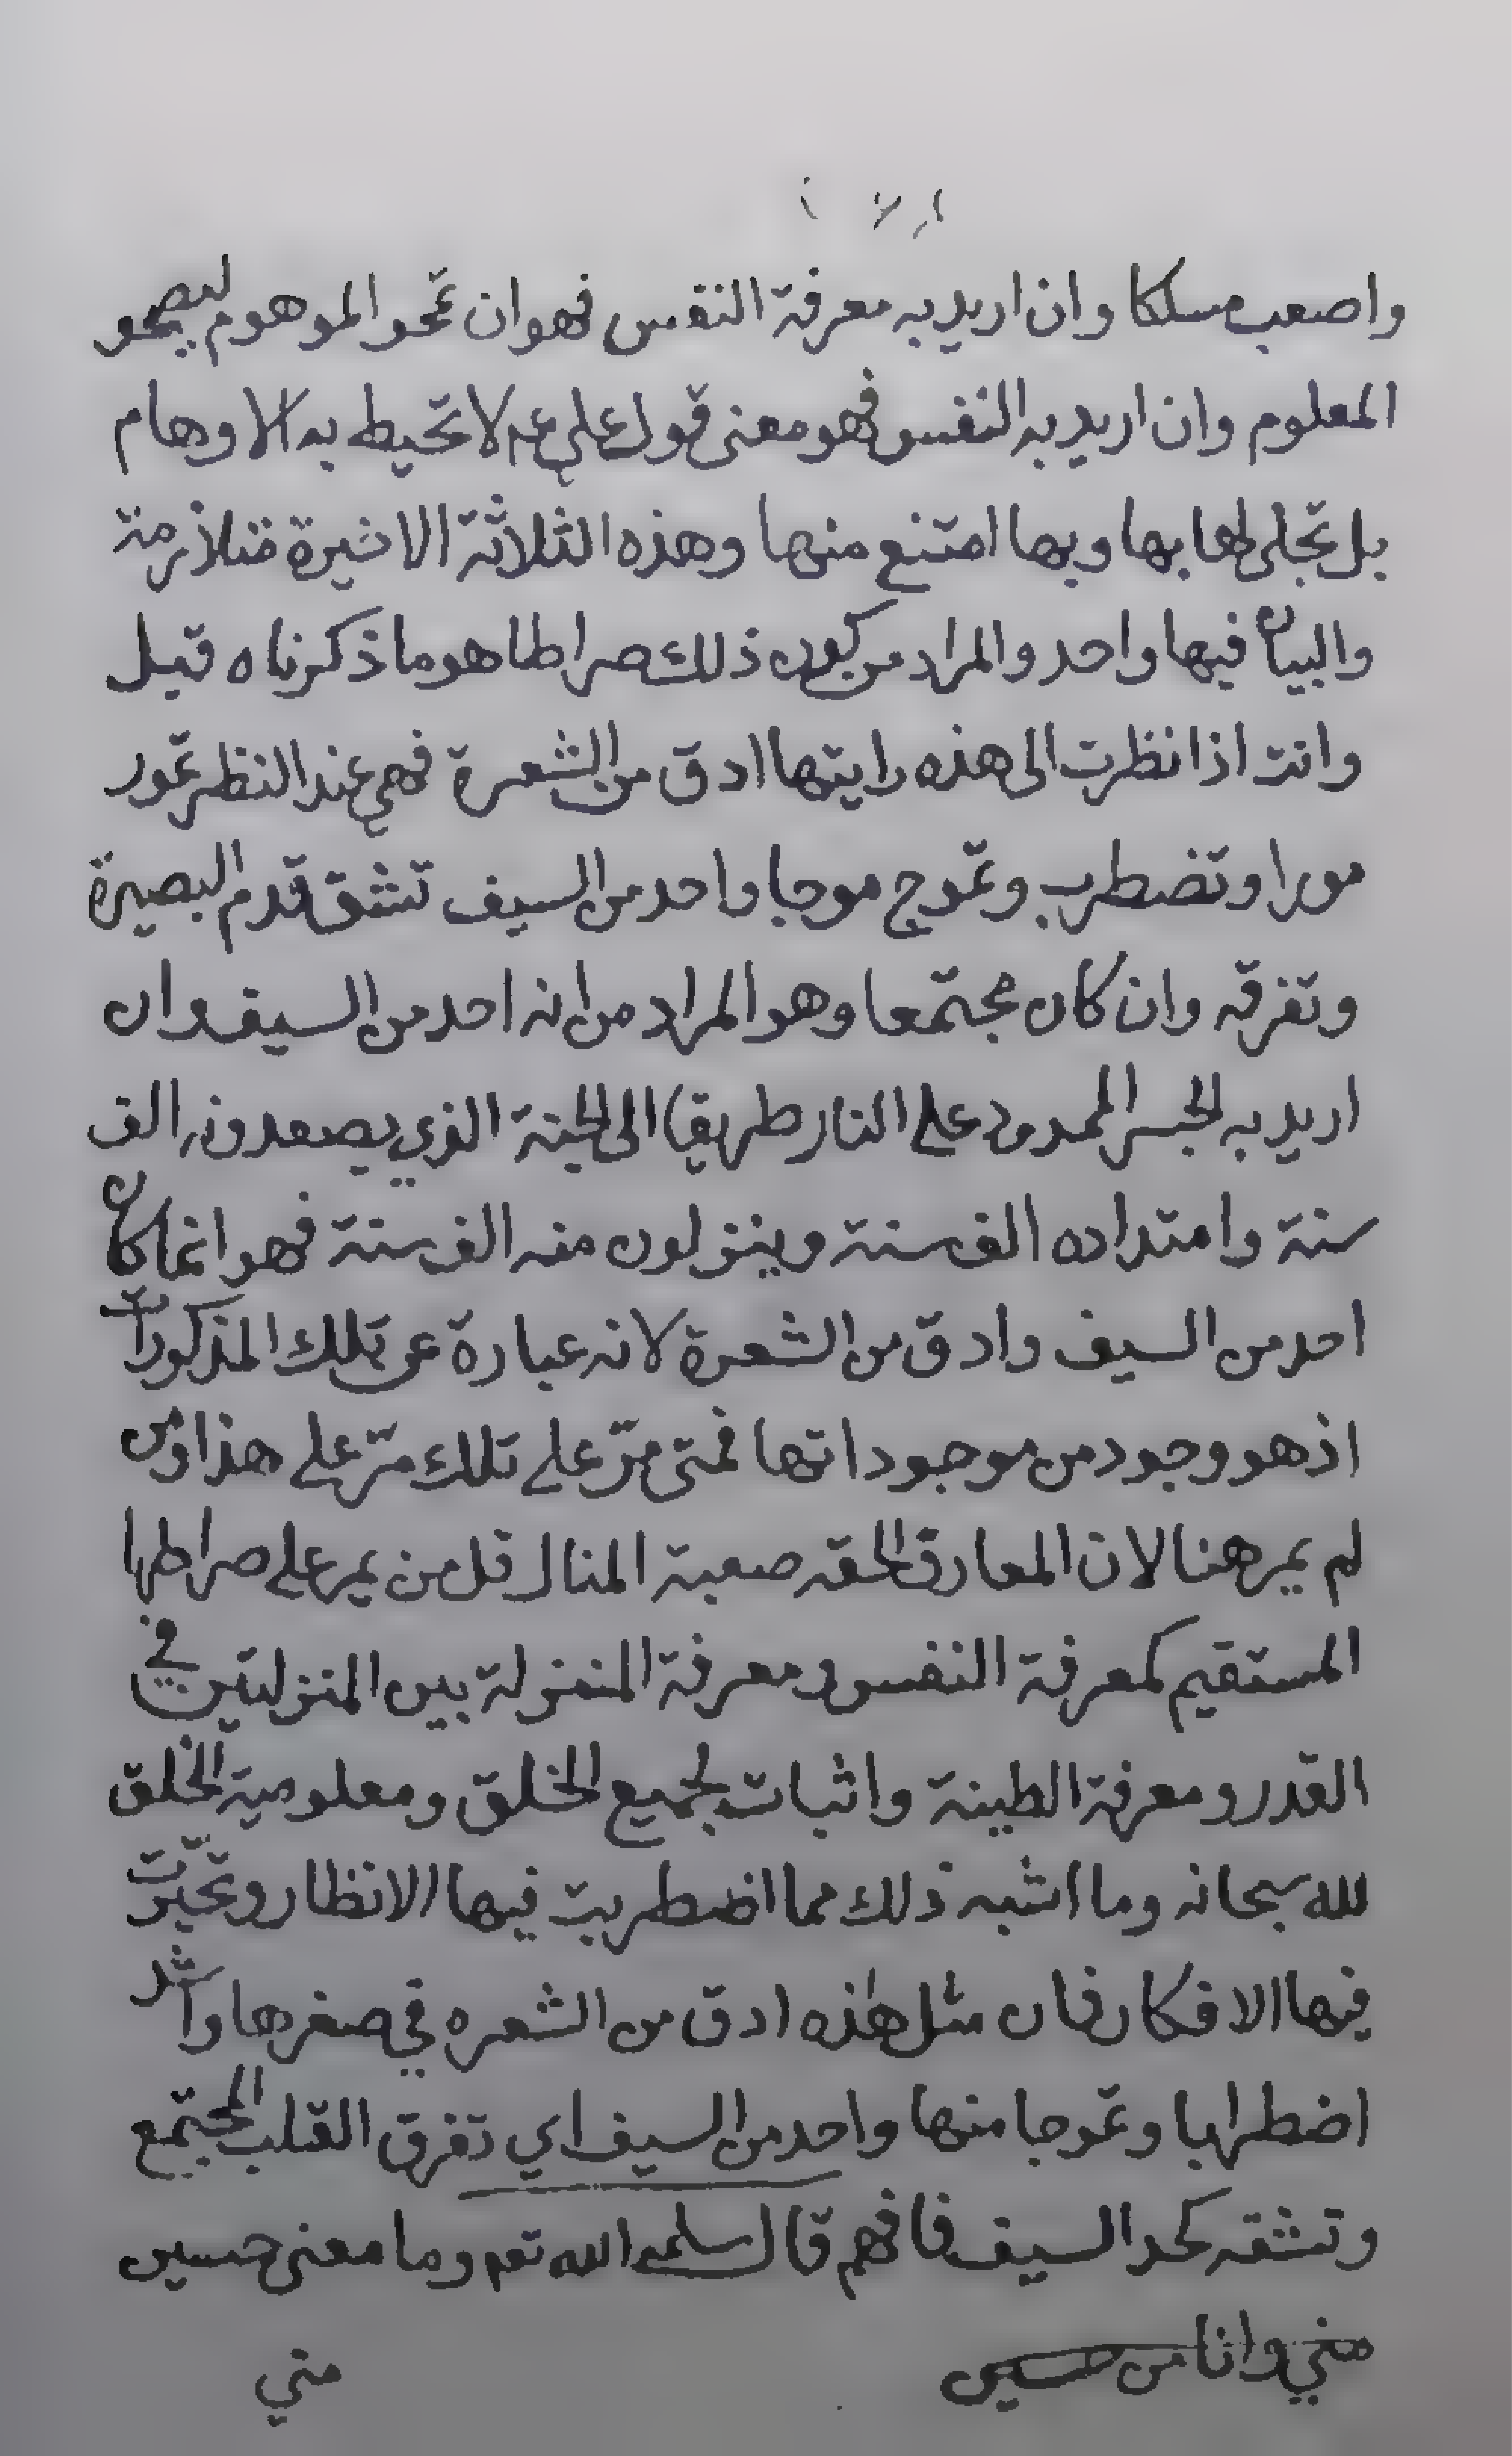 واصعب مسلكا وان اريد به معرفة النفس فهو ان تمحو الموهوم ليصحو
المعلوم وان اريد به النفس فهو معنى قول علي ع لا تحيط به الاوهام
بل تجلى لها بها وبها امتنع منها وهذه الثلاثة الاخيرة متلازمة
والبيان فيها واحد والمراد من كون ذلك صراطا هو ما ذكرناه قبل
وانت اذا نظرت الى هذه رايتها ادق من الشعرة فهي عند النظر تمور
مورا وتضطرب وتموج موجا واحد من السيف تشق قدم البصيرة
وتفرقه وان كان مجتمعا وهو المراد من انه احد من السيف وان
اريد به الجسر الممدود على النار طريقا الى الجنة الذي يصعدونه الف
سنة وامتداده الف سنة وينزلون منه الف سنة فهو انما كان
احد من السيف وادق من الشعرة لانه عبارة عن تلك المذكورات
اذ هو وجود من موجوداتها فمتى مرّ على تلك مرّ على هذا ومن
لم يمر هنا لان المعارف الحقه صعبة المنال قل من يمر على صراطها
المستقيم كمعرفة النفس ومعرفة المنزلة بين المنزلتين في
القدر ومعرفة الطينة واثبات لجميع الخلق ومعلومية الخلق
لله سبحانه وما اشبه ذلك مما اضطربت فيها الانظار وتحيّرت
فيها الافكار فان مثل هذه ادق من الشعره في صغرها واشد
اضطرابا وتموجا منها واحد من السيف اي تفرق القلب المجتمع
وتشقه كحد السيف فافهم قال سلمه الله تعم وما معنى حسين
مني وانا من حسين
مني